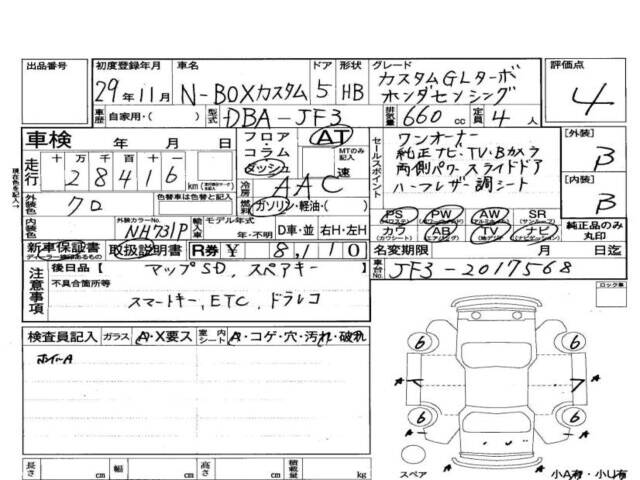 出品番号
初度登録年月 29年11月
車名 N-BOXカスタム
ドア 5
形状 HB
グレード カスタムGLターボ
ホンダセンシング
評価点 4
車歴 自家用・( )
型式 DBA-JF3
排気量 660 cc
定員 4 人
車検 年 月 日
フロア・コラム ダッシュ
AT
MTのみ記入 速
セールスポイント
ワンオーナー
純正ナビ、TV・Bカメラ
両側パワースライドドア
ハーフレザー調シート
[外装] B
[内装] B
現在色を記入→
走行 十万千百十一
28416 km
冷房 AAC
外装色 クロ
色替車は色替色
燃料 ガソリン・軽油・( )
外装カラーNo. NH731P
輸入車 モデル年式 年・不明
D車・並
右H・左H
PS PW AW SR
(パワステ) (サンルーフ)
カワ AB TV ナビ
(カワシート) (エアバッグ)
純正品のみ丸印
新車保証書 取扱説明書
R券 ¥ 8,110
名変期限 月 日迄
注意事項
後日品 [ マップSD、スペアキー
不具合箇所等
スマートキー、ETC、ドラレコ
車台No. JF3-2017568
ロック無
検査員記入 ガラス A・X要ス
室内シート A・コゲ・穴・汚れ・破れ
ホイールA
6 6
A A
6 6
A
長さ cm 幅 cm 高さ cm 積載量 kg
スペア
小A有・小U有